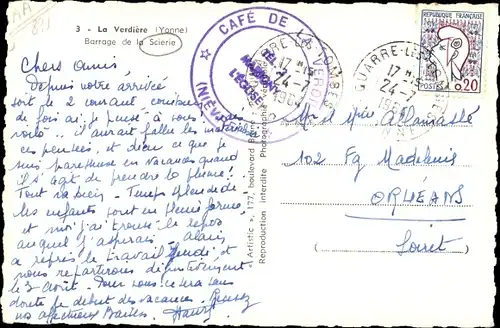 AA
821
3 - La Verdière (Yonne)
Barrage de la Scierie
CAFÉ DE LA
TEL.
L'ÉGLISE
(NIÈVRE)
17 H 15
24-7
QUARRÉ-LES-
17 H
24-7
RÉPUBLIQUE FRANÇAISE
POSTES 0,20
Chers amis,
Depuis votre arrivée
soit le 2 courant, combien
de fois ai-je pensé à vous
il aurait fallu les matérialiser
ces pensées, et dieu ce que je
suis paresseuse en vacances quand
il s'agit de prendre la plume!
Tout va bien. Temps splendide
les enfants sont en pleine forme,
et moi j'ai trouvé le repos
auquel j'aspirais. Alain
a repris le travail jeudi et
nous repartirons définitivement
le 3 Août. Pour vous ce sera sans
doute le début des vacances. Recevez
nos affectueux Baisers.
"Artistic", 177, boulevard
Reproduction interdite Photographie
Mr et Mme
102 Fg Madeleine
ORLÉANS
Loiret